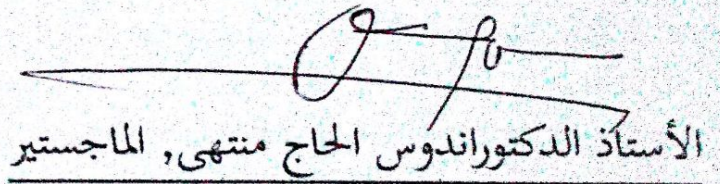 الأستاذ الدكتوراندوس الحاج منتهى, الماجستير